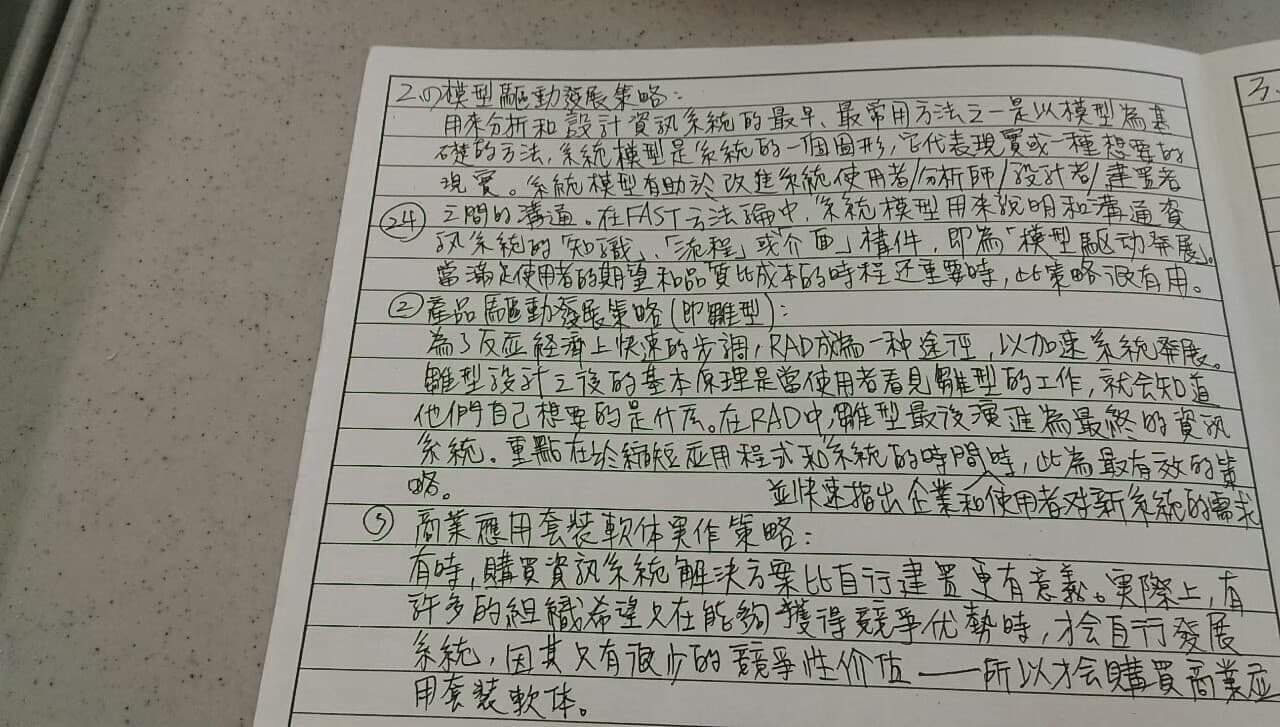 2.(1)模型驅動發展策略：
用來分析和設計資訊系統的最早、最常用方法之一是以模型為基
礎的方法,系統模型是系統的一個圖形,它代表現實或一種想要的
現實。系統模型有助於改進系統使用者/分析師/設計者/建置者
24 之間的溝通。在FAST方法論中,系統模型用來說明和溝通資
訊系統的「知識」、「流程」或「介面」構件,即為「模型驅动發展」。
當滿足使用者的期望和品質比成本的時程还重要時,此策略很有用。
② 產品驅動發展策略(即雛型)：
為了反应經濟上快速的步調,RAD成為一种途徑,以加速系統發展。
雛型設計之後的基本原理是當使用者看見雛型的工作,就会知道
他們自己想要的是什麼。在RAD中,雛型最後演進為最終的資訊
系統。重點在於縮短应用程式和系統的時間時,此為最有效的策
略。 並快速指出企業和使用者对新系統的需求
③ 商業應用套裝軟体実作策略：
有時,購買資訊系統解決方案比自行建置更有意義。実際上,有
許多的組織希望只在能夠獲得競爭优勢時,才会自行發展
系統,因其只有很少的競爭性价值——所以才会購買商業应
用套裝軟体。
3.